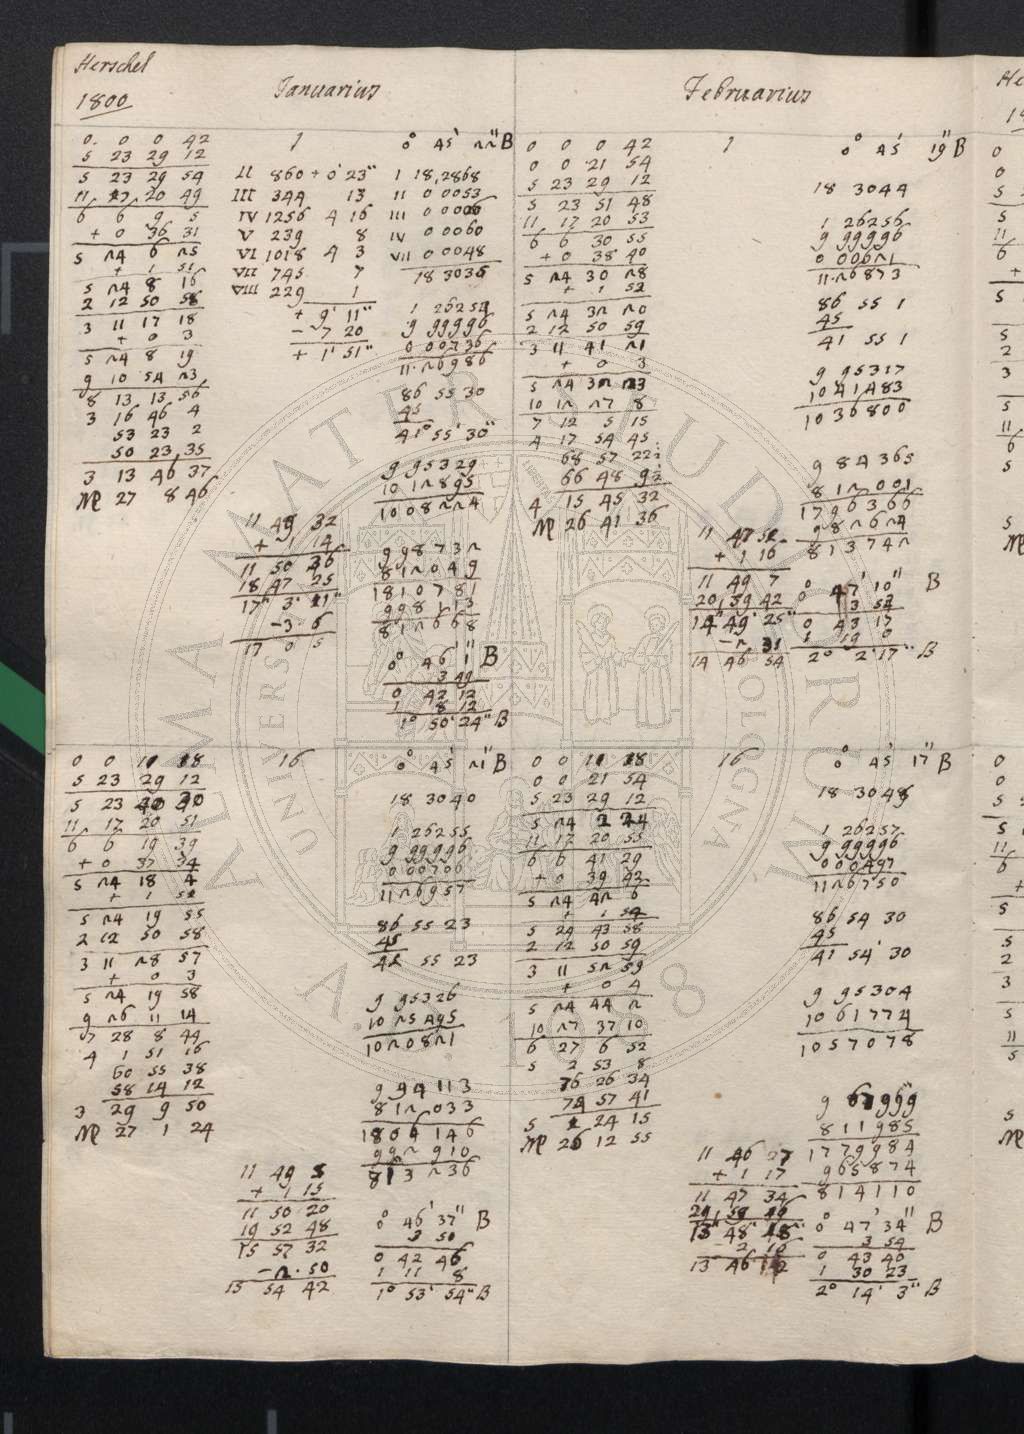 Herschel
1800
Januarius
Februarius
0. 0 0 42
5 23 29 12
5 23 29 54
11 17 20 49
6 6 9 5
+ 0 36 31
5 24 6 25
+ 1 51
5 24 8 16
2 12 50 58
3 11 17 18
+ 0 3
5 24 8 19
9 10 54 23
8 13 13 56
3 16 46 4
53 23 2
50 23,35
3 13 46 37
♍ 27 8 46
1
II 860 + 0' 23"
III 344 13
IV 1256 4 16
V 239 8
VI 1018 4 3
VII 745 7
VIII 229 1
+ 9' 11"
- 7 20
+ 1' 51"
11 49 32
+ 1 14
11 50 46
18 47 25
17" 3' 21"
-3. 6
17 0 5
0° 45' 22" B
1 18,2868
II 0 0053
III 0 0006
IV 0 0060
VII 0 0048
18 3035
1 26254
9 99996
0 00736
11.26986
86 55 30
45
41° 55' 30"
9 95329
10 12895
10 08224
9 98732
8 12049
18 10781
9 98113
8 12668
0° 46' 1" B
3 49
0 42 12
1 8 12
1° 50' 24" B
0 0 0 42
0 0 21 54
5 23 29 12
5 23 51 48
11 17 20 53
6 6 30 55
+ 0 38 40
5 24 30 28
+ 1 52
5 24 32 20
2 12 50 59
3 11 41 21
+ 0 3
5 24 32 23
10 12 27 8
7 12 5 15
4 17 54 45
68 57 22½
66 48 9½
4 15 45 32
♍ 26 41 36
1
11 47 51
+ 1 16
11 49 7
20,59 42
14" 49' 25"
-2 31
14 46 54
0° 45' 19" B
18 3044
1 26256
9 99996
0 00621
11.26873
86 55 1
45
41 55 1
9 95317
10 41483
10 36800
9 84365
8 12001
17 96366
9 82624
8 13742
0° 47' 10" B
3 53
0 43 17
1 19 0
2° 2' 17" B
0 0 11 18
5 23 29 12
5 23 40 30
11 17 20 51
6 6 19 39
+ 0 37 34
5 24 18 4
+ 1 51
5 24 19 55
2 12 50 58
3 11 28 57
+ 0 3
5 24 19 58
9 26 11 14
7 28 8 44
4 1 51 16
60 55 38
58 14 12
3 29 9 50
♍ 27 1 24
16
11 49 5
+ 1 15
11 50 20
19 52 48
15 57 32
-2. 50
15 54 42
0° 45' 21" B
18 3040
1 26255
9 99996
0 00706
11 26957
86 55 23
45
41 55 23
9 95326
10 25495
10 20821
9 94113
8 12033
18 06146
9 92910
8 13236
0° 46' 37" B
3 50
0 42 46
1 11 8
1° 53' 54" B
0 0 11 18
0 0 21 54
5 23 29 12
5 24 2 24
11 17 20 55
6 6 41 29
+ 0 39 42
5 24 42 6
+ 1 54
5 24 43 58
2 12 50 59
3 11 52 59
+ 0 4
5 24 44 2
10 27 37 10
6 27 6 52
5 2 53 8
76 26 34
74 57 41
5 1 24 15
♍ 26 12 55
16
11 46 27
+ 1 17
11 47 34
13" 48' 48"
2 16
13 46 12
0° 45' 17" B
18 3048
1 26257
9 99996
0 00497
11 26750
86 54 30
45
41 54' 30
9 95304
10 61774
10 57078
9 67999
8 11985
17 79984
9 65874
8 14110
0° 47' 34" B
3 54
0 43 40
1 30 23
2° 14' 3" B